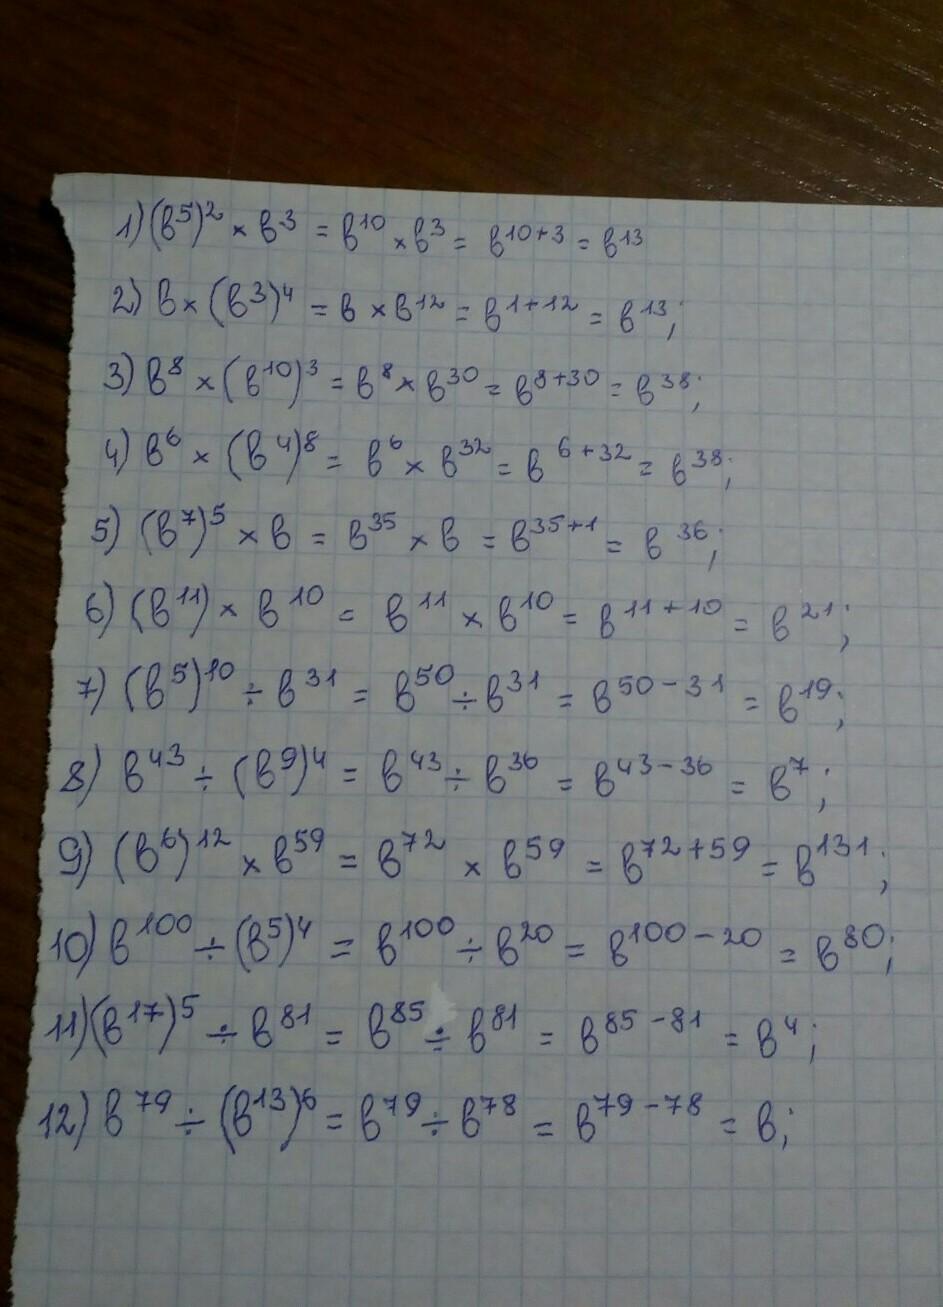 1) (в⁵)² × в³ = в¹⁰ × в³ = в¹⁰⁺³ = в¹³
2) в × (в³)⁴ = в × в¹² = в¹⁺¹² = в¹³;
3) в⁸ × (в¹⁰)³ = в⁸ × в³⁰ = в⁸⁺³⁰ = в³⁸;
4) в⁶ × (в⁴)⁸ = в⁶ × в³² = в⁶⁺³² = в³⁸;
5) (в⁷)⁵ × в = в³⁵ × в = в³⁵⁺¹ = в³⁶;
6) (в¹¹) × в¹⁰ = в¹¹ × в¹⁰ = в¹¹⁺¹⁰ = в²¹;
7) (в⁵)¹⁰ ÷ в³¹ = в⁵⁰ ÷ в³¹ = в⁵⁰⁻³¹ = в¹⁹;
8) в⁴³ ÷ (в⁹)⁴ = в⁴³ ÷ в³⁶ = в⁴³⁻³⁶ = в⁷;
9) (в⁶)¹² × в⁵⁹ = в⁷² × в⁵⁹ = в⁷²⁺⁵⁹ = в¹³¹;
10) в¹⁰⁰ ÷ (в⁵)⁴ = в¹⁰⁰ ÷ в²⁰ = в¹⁰⁰⁻²⁰ = в⁸⁰;
11) (в¹⁷)⁵ ÷ в⁸¹ = в⁸⁵ ÷ в⁸¹ = в⁸⁵⁻⁸¹ = в⁴;
12) в⁷⁹ ÷ (в¹³)⁶ = в⁷⁹ ÷ в⁷⁸ = в⁷⁹⁻⁷⁸ = в;